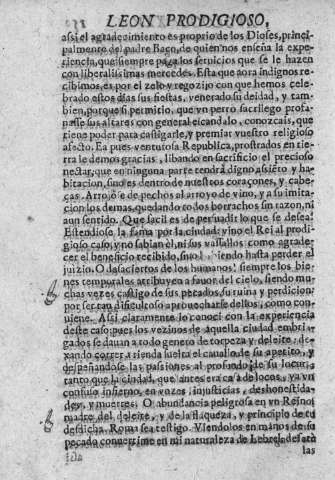 LEON PRODIGIOSO,
assi el agradecimiento es proprio de los Dioses, princi-
palmente del padre Baco, de quien nos enseña la expe-
riencia, que siempre paga los servicios que se le hazen
con liberalissimas mercedes. Esta que aora indignos re-
cibimos, es por el zelo y regozijo con que hemos cele-
brado estos dias sus fiestas, venerado su deidad, y tam-
bien, porque si permitio, que vn perro sacrilego profa-
nasse sus altares con general escandalo, conozcais, que
tiene poder para castigarle, y premiar vuestro religioso
afecto. Ea pues venturosa Republica, prostrados en tie-
rra le demos gracias, libando en sacrificio el precioso
nectar, que en ninguna parte tendrà digno assiēto y ha-
bitacion, sino es dentro de nuestros coraçones, y cabe-
ças. Arrojòse de pechos al arroyo de vino, y a su imita-
cion los demas, quedando todos borrachos sin razon, ni
aun sentido. Que facil es de persuadir lo que se desea!
Estendiose la fama por la ciudad: vino el Rei al prodi-
gioso caso, y no sabian el, ni sus vassallos como agrade-
cer el beneficio recibido, sino bebiendo hasta perder el
juizio. O desaciertos de los humanos! siempre los bie-
nes temporales atribuyen a favor del cielo, siendo mu-
chas vezes castigo de sus pecados, su ruina y perdicion
por ser tan dificultoso aprovecharse dellos, como con-
viene. Assi claramente lo conoci con la experiencia
deste caso; pues los vezinos de aquella ciudad embria-
gados se davan a todo genero de torpeza y deleite, de-
xando correr a rienda suelta el cavallo de su apetito, y
despeñandose las passiones al profundo de su locura;
tanto que la ciudad, que antes era casa de locos, ya un
confuso infierno, en vozes, injusticias, deshonestida-
des, y muertes. O abundancia peligrosa en vn Reino!
madre del deleite, y de la flaqueza, y principio de tu
desdicha. Roma sea testigo. Viendolos en manos de su
pecado convertime en mi naturaleza de Lebrel,
las